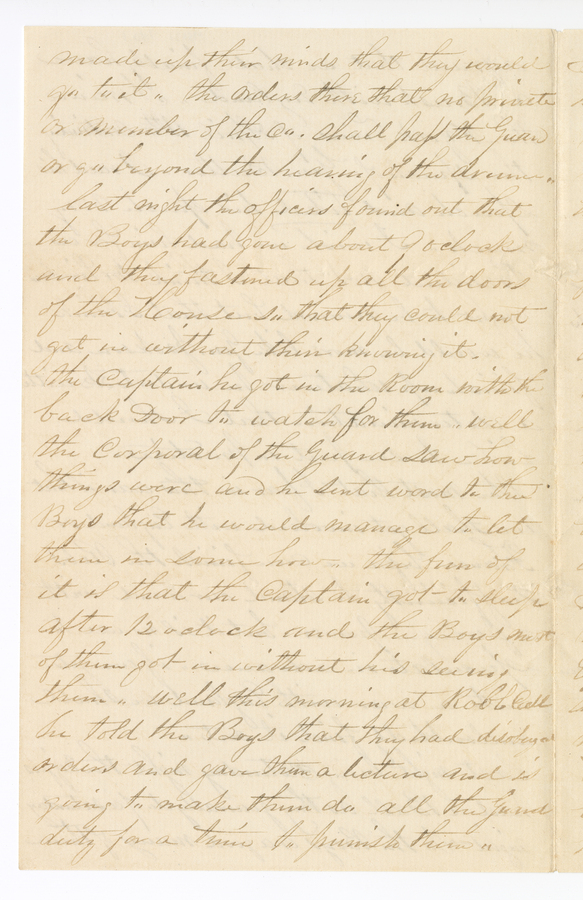 made up their minds that they would
go to it " the orders there that no private
or member of the Co. shall pass the Guard
or go beyond the hearing of the drums "
last night the officers found out that
the Boys had gone about 9 oclock
and they fastened up all the doors
of the House so that they could not
get in without their knowing it.
the Captain he got in the Room with the
back Door to watch for them . well
the Corporal of the Guard saw how
things were and he sent word to the
Boys that he would manage to let
them in some how " the fun of
it is that the Captain got to sleep
after 12 oclock and the Boys most
of them got in without his seeing
them " well this morning at Roll Call
he told the Boys that they had disobeyed
orders and gave them a lecture and is
going to make them do all the Guard
duty for a time to punish them "